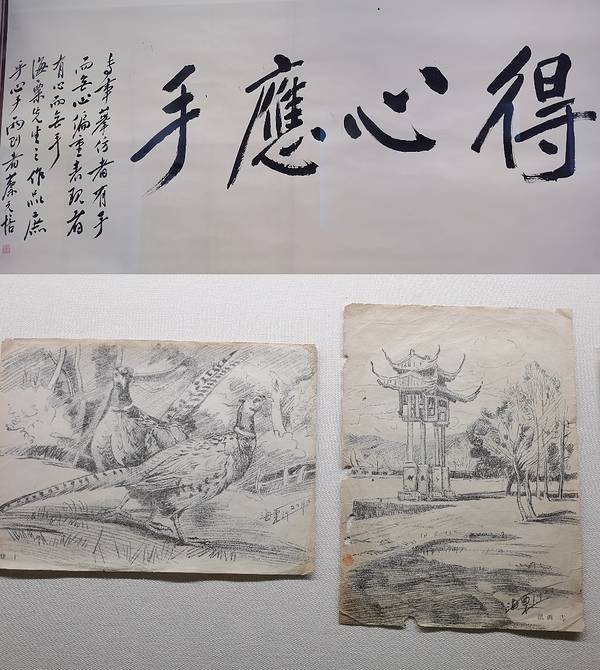 得心應手
專事摹仿者有手
而無心偏重表現者
有心而無手
海粟先生之作品庶
乎心手兩到者蔡元培
海粟
海粟